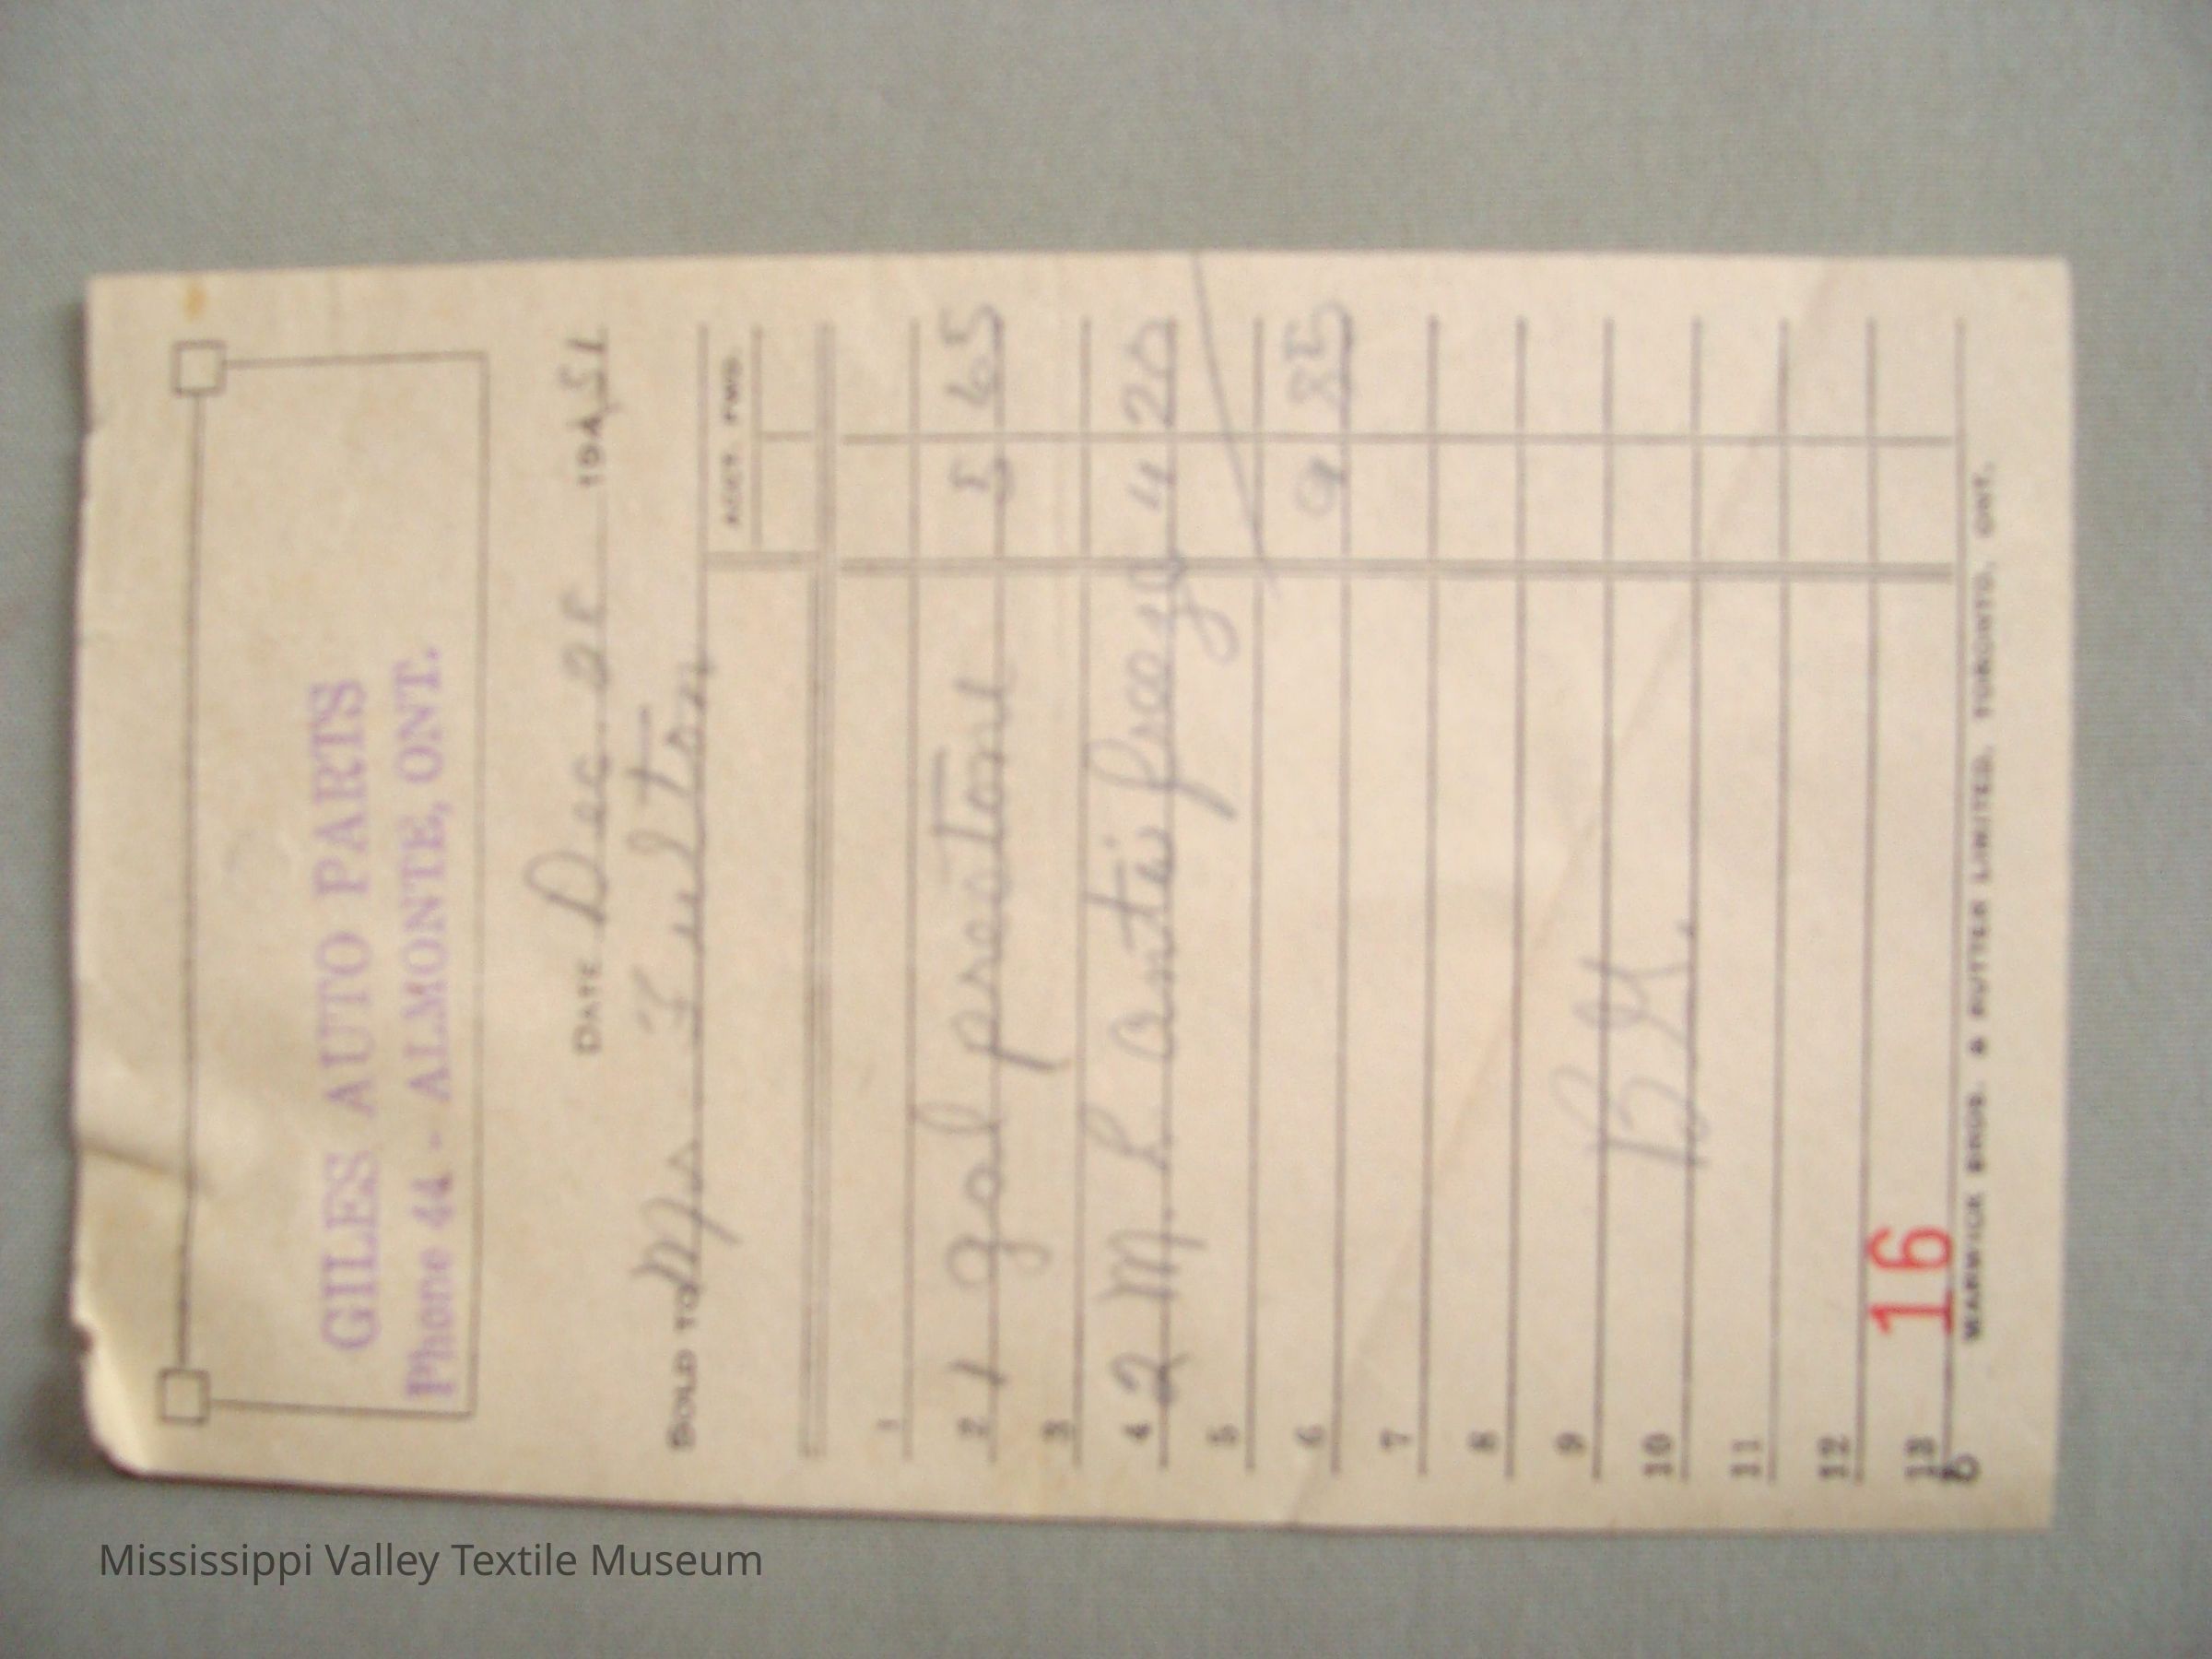 GILES AUTO PARTS
Phone 44 - ALMONTE, ONT.
DATE Dec. 194 51
SOLD TO Mr Fulton
ACCT. FWD.
1
2 1 gal prestone 5 65
3
4 2 M. L. anti freeze 4 20
5
6 9 85
7
8
9
10
11
12
13
16
WARWICK BROS. & RUTTER LIMITED, TORONTO, ONT.
Mississippi Valley Textile Museum